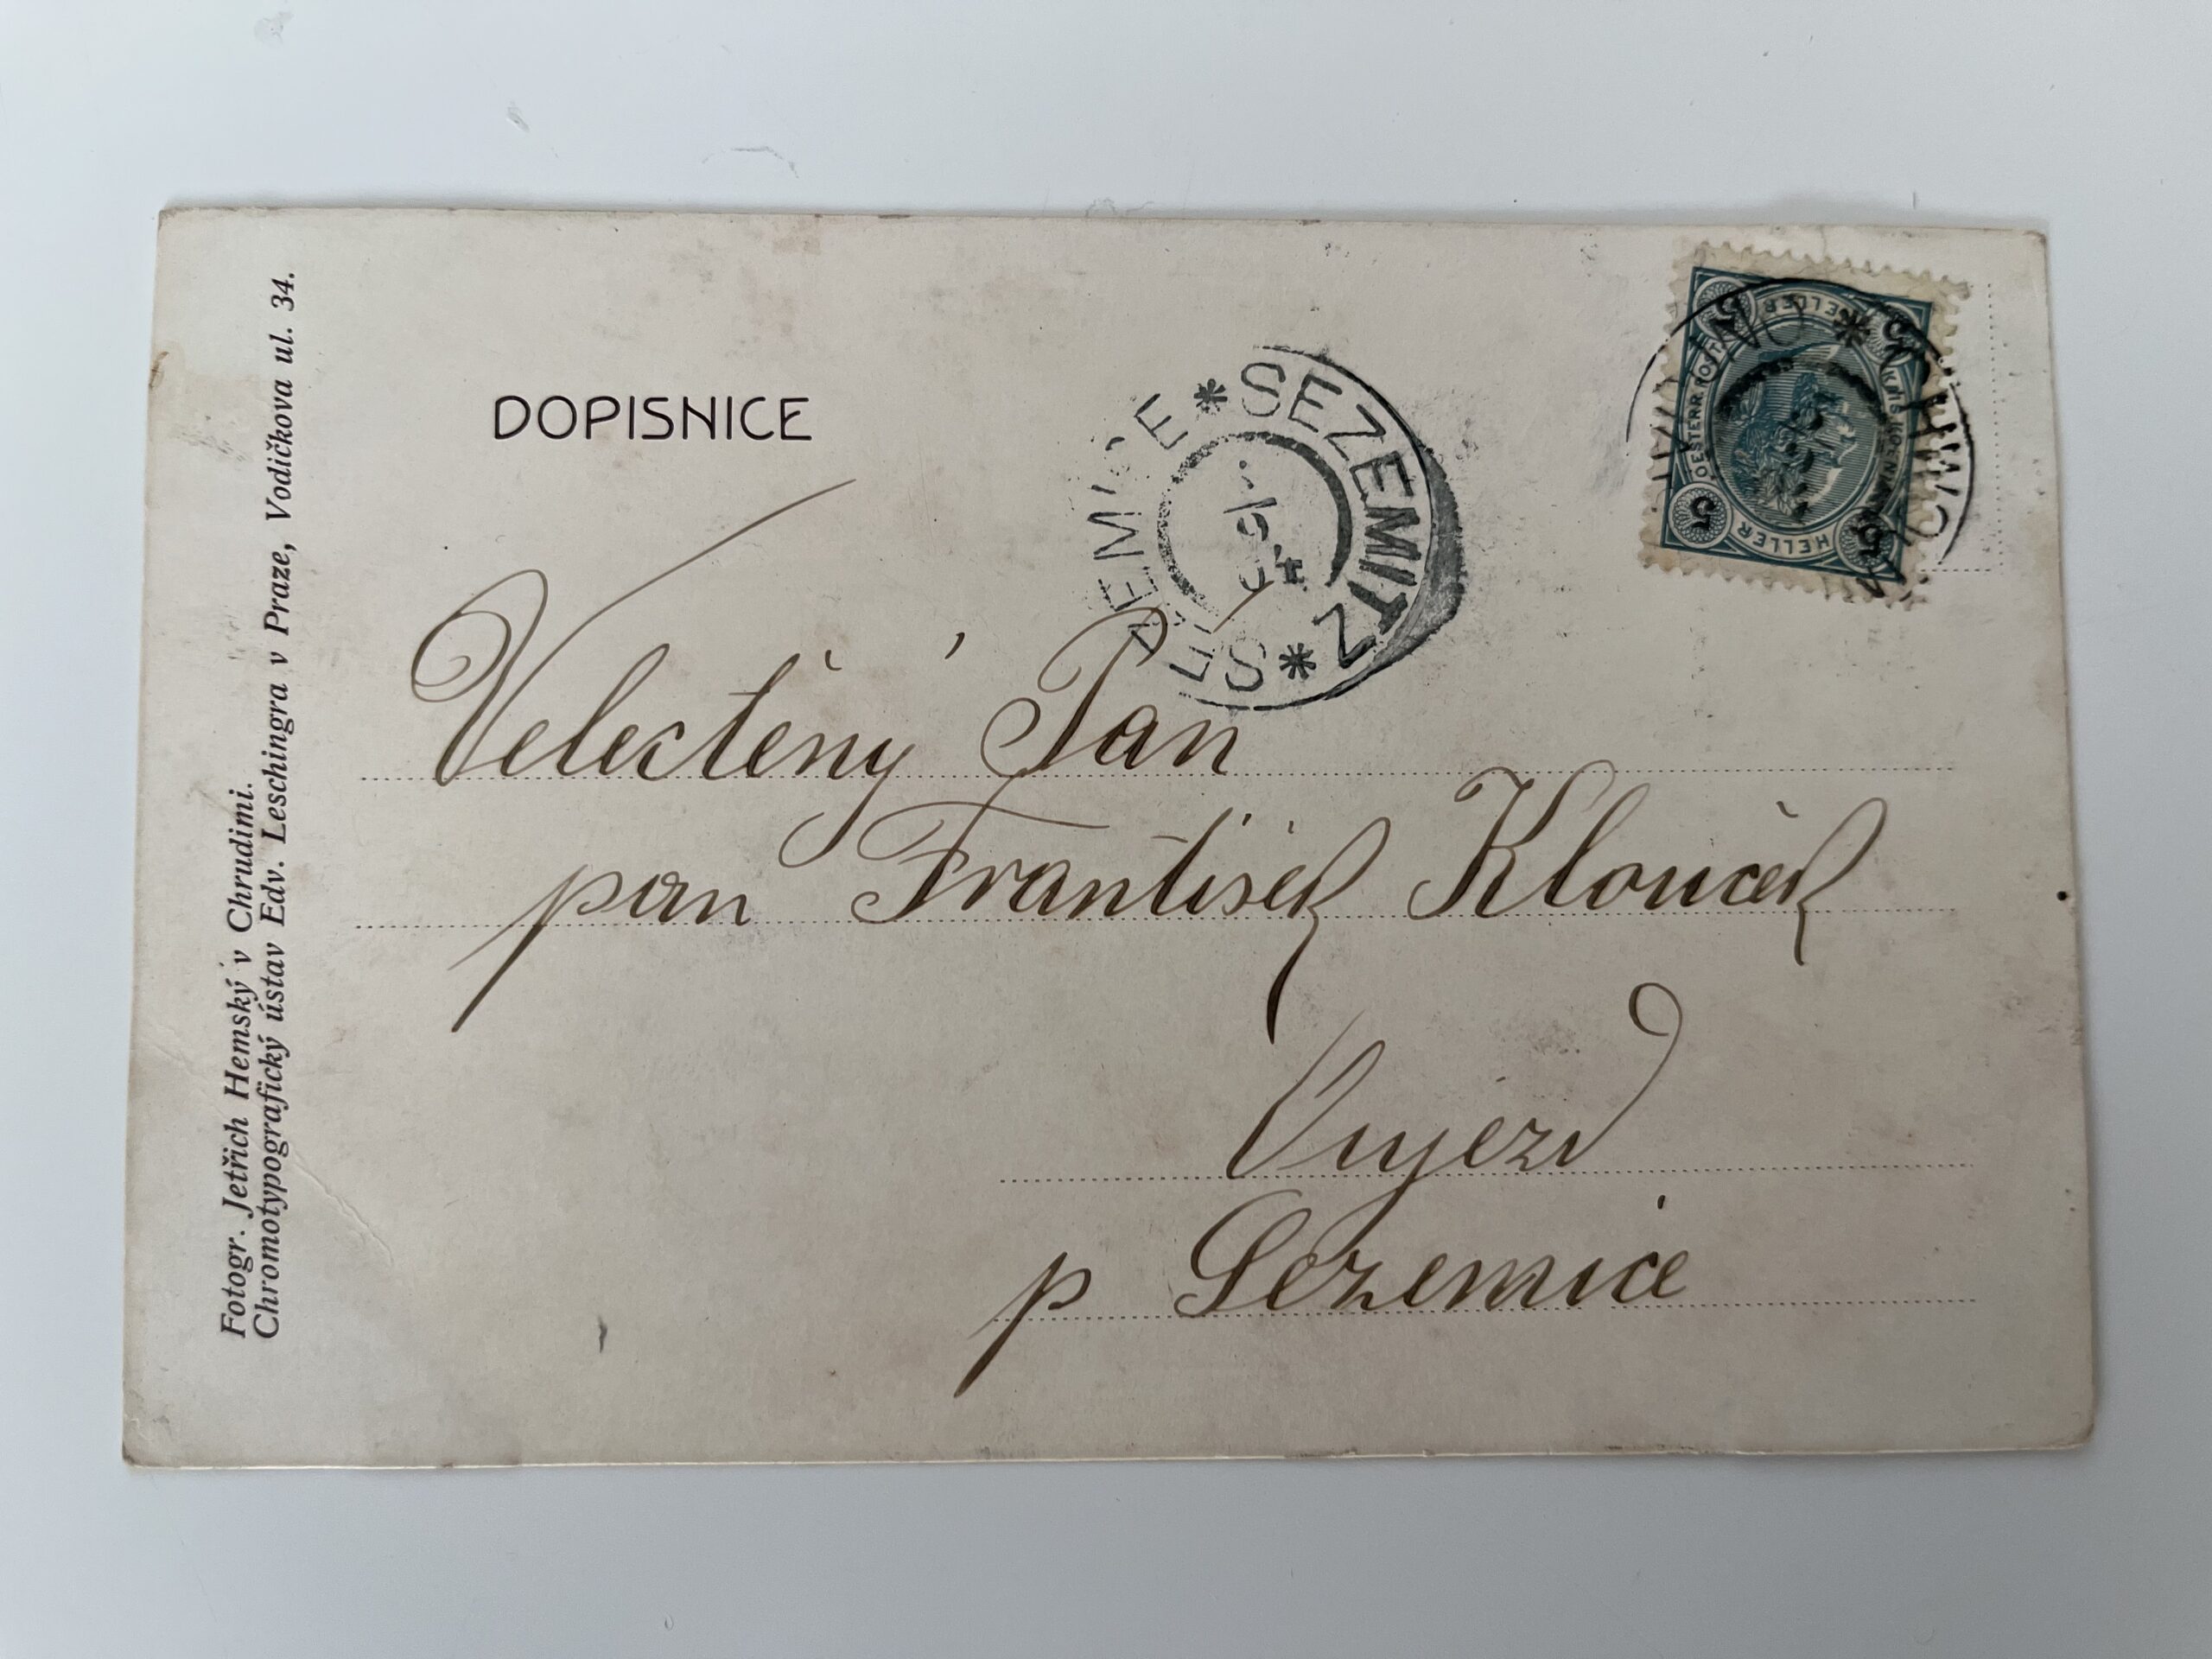 DOPISNICE
SEZEMITZ * SEZEMICE *
9 04
5 HELLER
OESTERR. POST
5 HELLER
Velectěný Pan
pan František Klouček
Vujezd
p Sezemice
Fotogr. Jetřich Hemský v Chrudimi.
Chromotypografický ústav Edv. Leschingra v Praze, Vodičkova ul. 34.